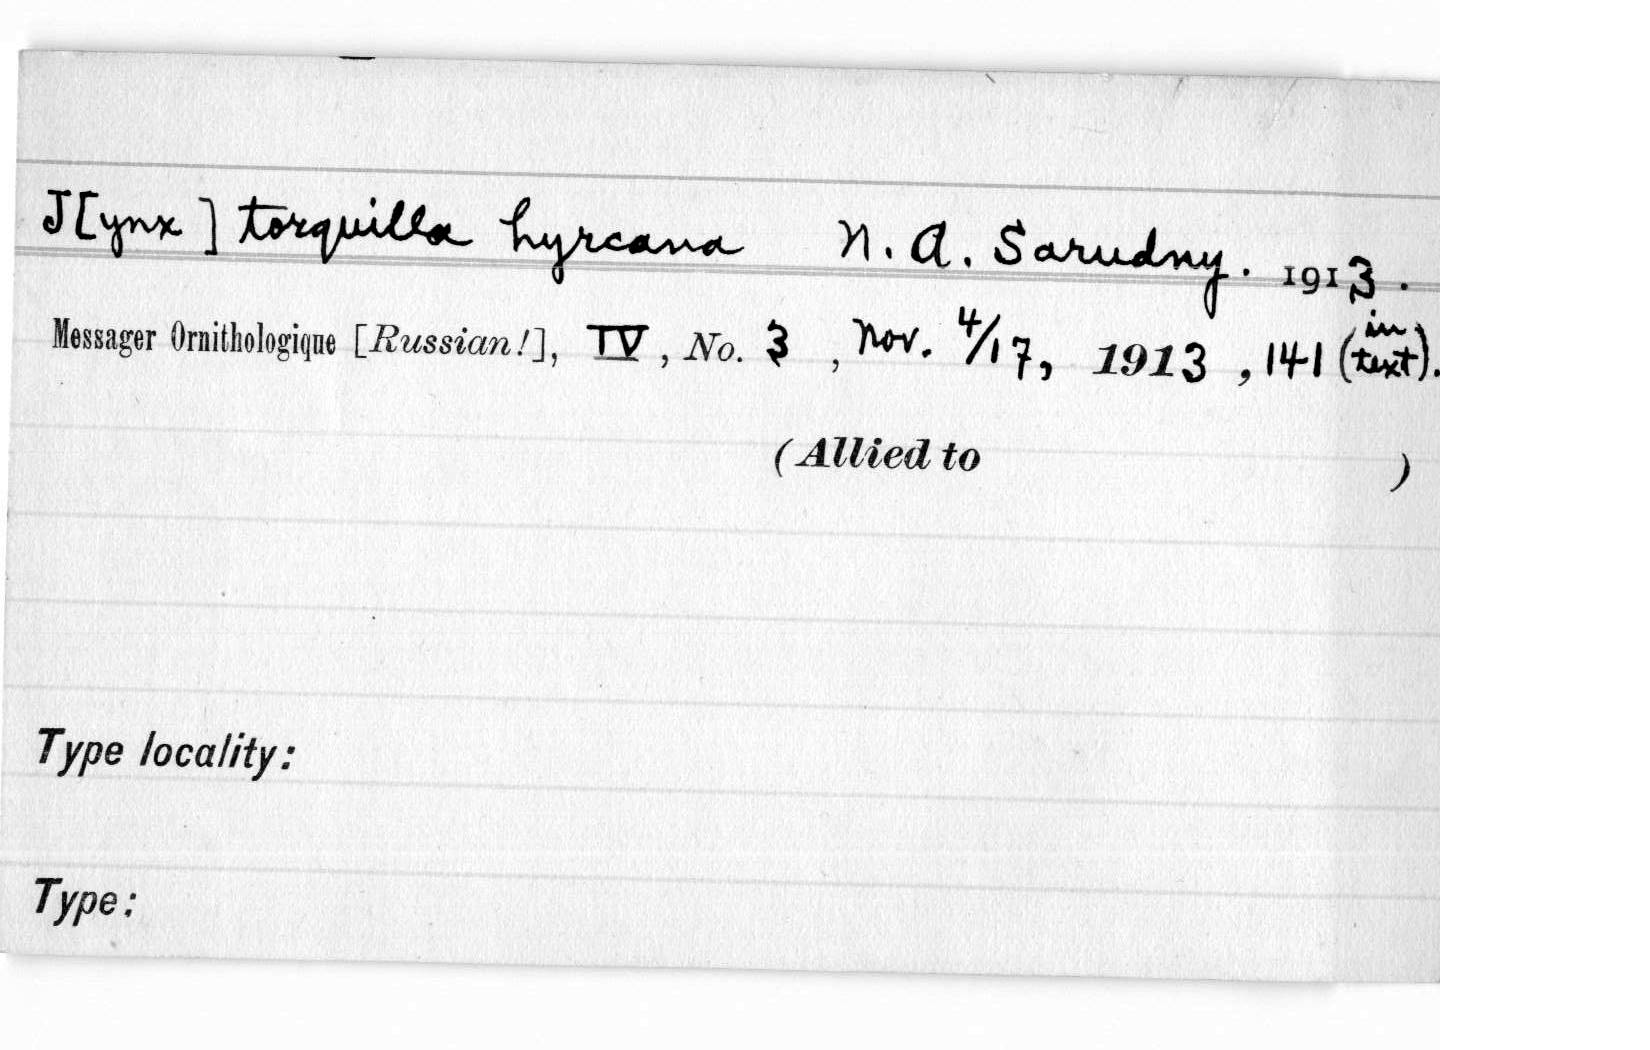 J[ynx] torquilla hyrcana N. A. Sarudny. 1913.
Messager Ornithologique [Russian!], IV, No. 3, Nov. 4/17, 1913, 141 (in text).
(Allied to )
Type locality:
Type: